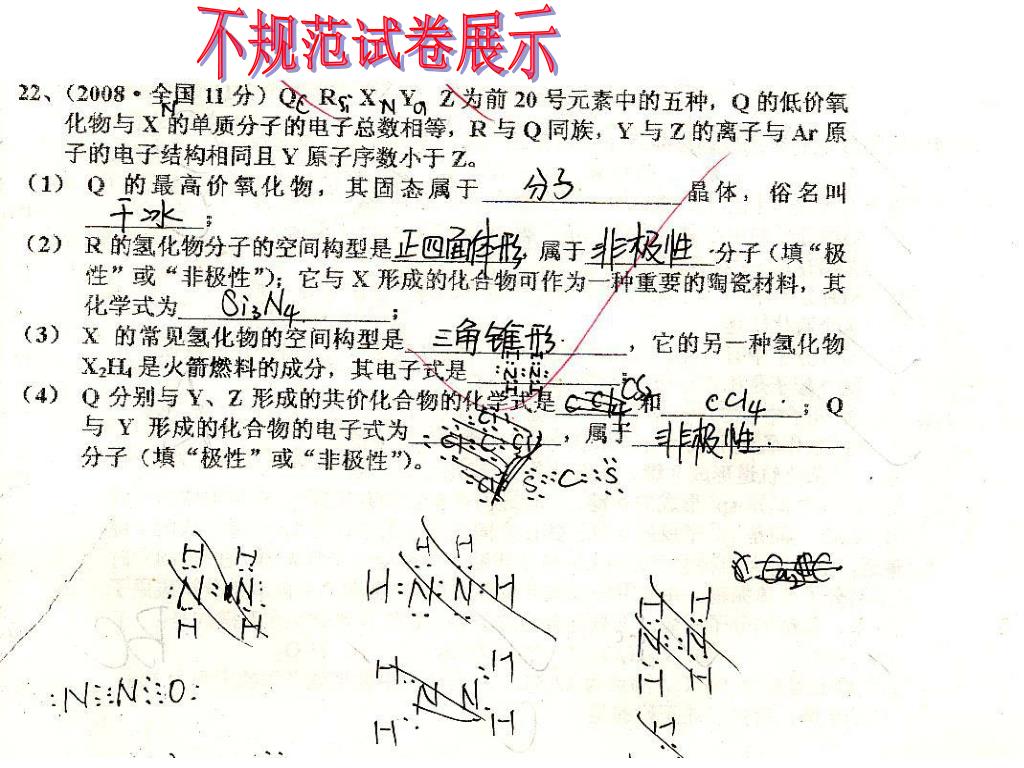 不规范试卷展示
22、(2008·全国 11 分) Q、R、X、Y、Z 为前 20 号元素中的五种，Q 的低价氧
C Si N Cl
N
化物与 X 的单质分子的电子总数相等，R 与 Q 同族，Y 与 Z 的离子与 Ar 原
子的电子结构相同且 Y 原子序数小于 Z。
(1) Q 的最高价氧化物，其固态属于 分子 晶体，俗名叫
干冰；
(2) R 的氢化物分子的空间构型是 正四面体形，属于 非极性 分子（填“极
性”或“非极性”）；它与 X 形成的化合物可作为一种重要的陶瓷材料，其
化学式为 Si₃N₄；
(3) X 的常见氢化物的空间构型是 三角锥形，它的另一种氢化物
H H
X₂H₄ 是火箭燃料的成分，其电子式是 :N:N:
H H
(4) Q 分别与 Y、Z 形成的共价化合物的化学式是 CCl₄ CS₂ 和 CCl₄；Q
与 Y 形成的化合物的电子式为 Cl:C:Cl，属于 非极性
Cl
Cl
分子（填“极性”或“非极性”）。
S::C::S
H H
N:N
H H
H H
H:N:N:H
H H
N N
H H
H H
N::N
H H
H
:N:::N:::O: